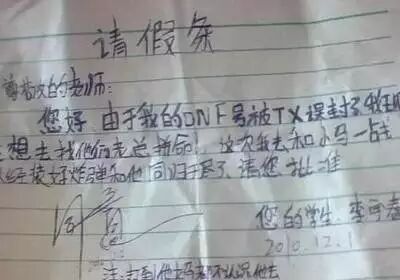 请假条
尊敬的老师:
您好 由于我的DNF号被TX误封了 我现
想去找他们老总拼命! 这次我去和小马一战
经装好炸弹和他同归于尽了 请您批准
同意
您的学生 李
2010.12.1
注:打到他妈都不认识他去